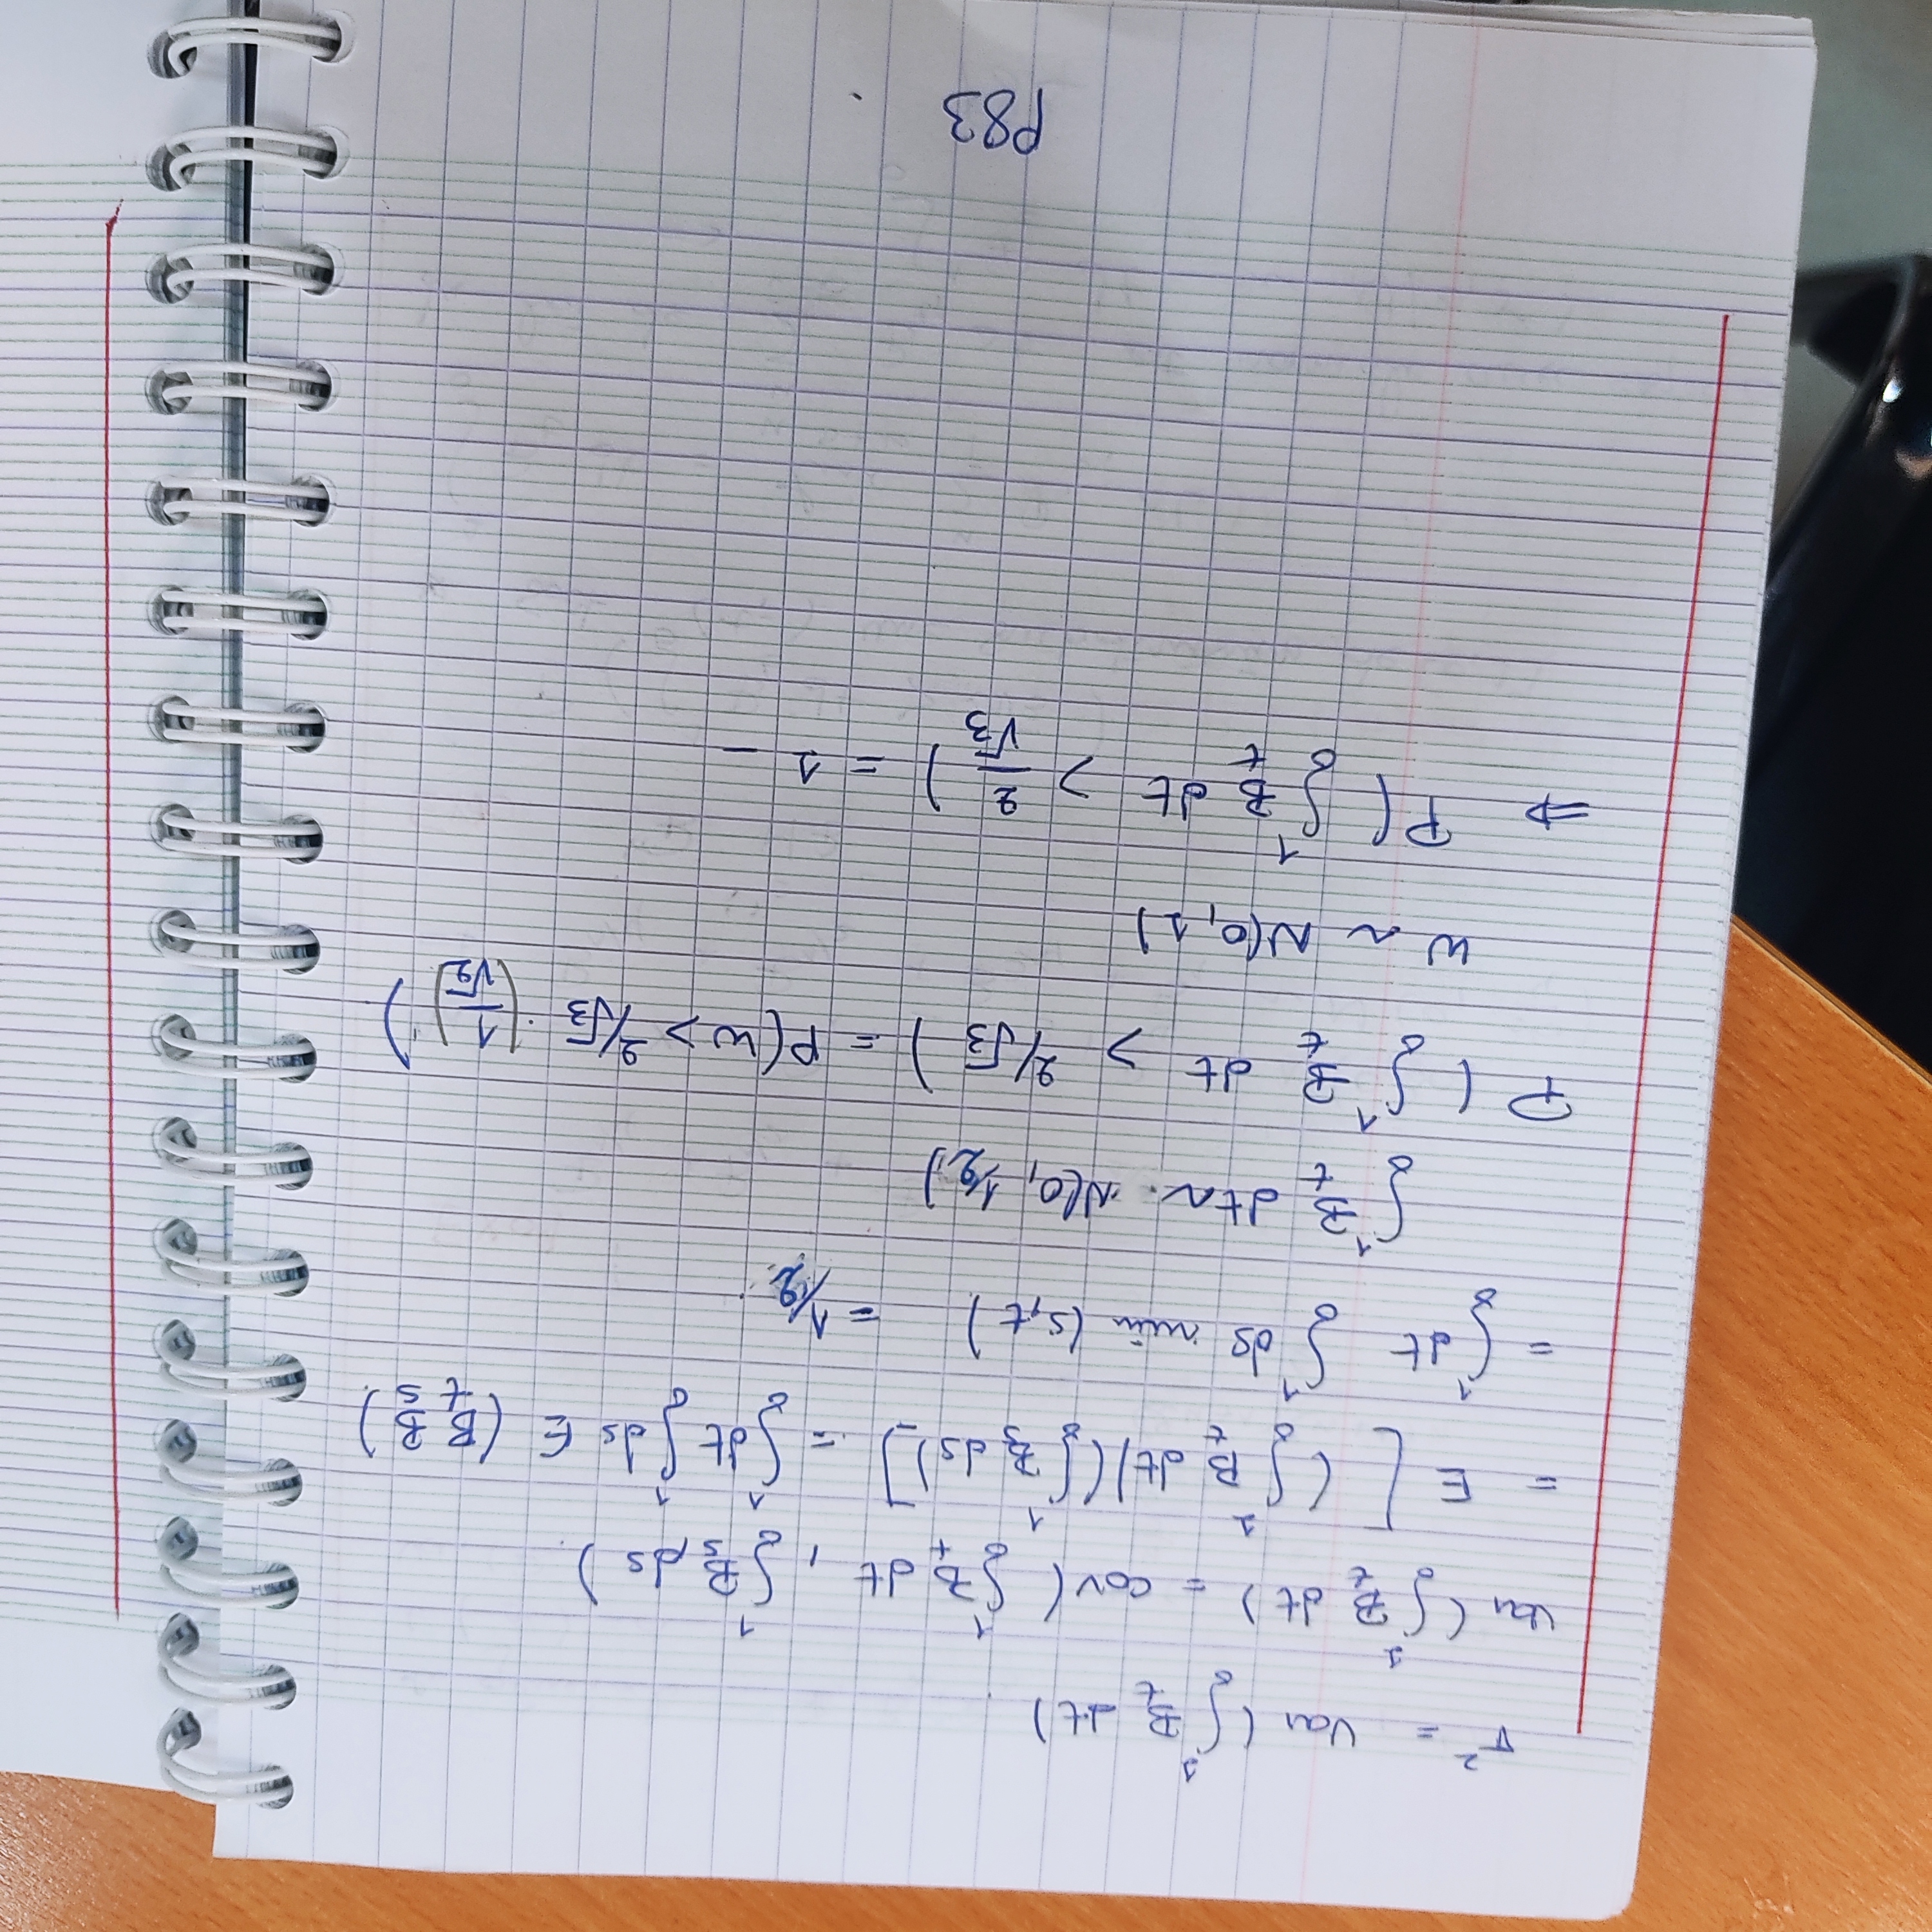 σ² = Var (∫₀¹ B_t dt).
Var (∫₀¹ B_t dt) = cov( ∫₀¹ B_t dt , ∫₀¹ B_s ds ).
= E [ (∫₀¹ B_t dt)(∫₀¹ B_s ds) ] = ∫₀¹ dt ∫₀¹ ds E (B_t B_s).
= ∫₀¹ dt ∫₀¹ ds min (s,t) = 1/2.
∫₀¹ B_t dt ~ N(0, 1/2)
P ( ∫₀¹ B_t dt > 2/√3 ) = P(W > 2/√3 · (1/√2))
W ~ N(0, 1)
⇒ P( ∫₀¹ B_t dt > 2/√3 ) = 1 _
P83 .